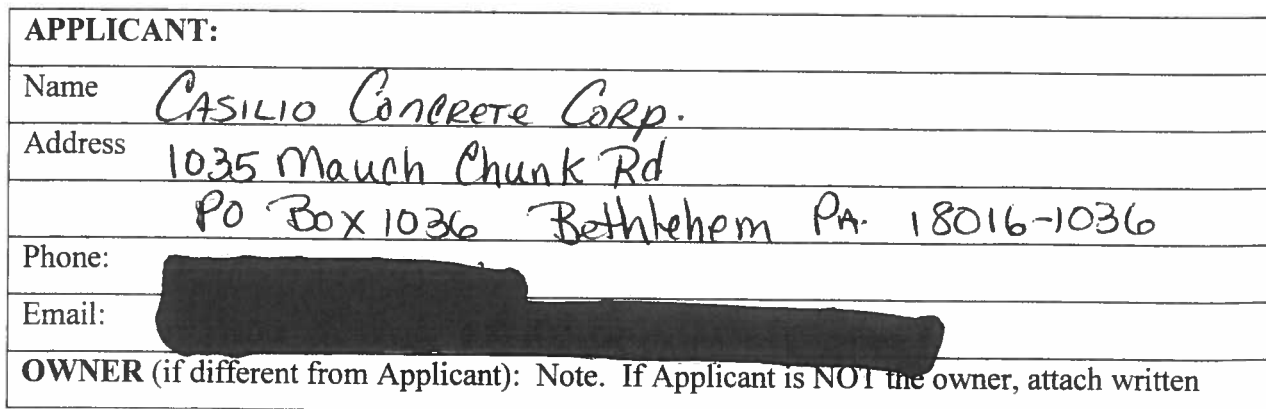 APPLICANT:
Name CASILIO CONCRETE CORP.
Address 1035 Mauch Chunk Rd
PO Box 1036 Bethlehem PA. 18016-1036
Phone:
Email:
OWNER (if different from Applicant): Note. If Applicant is NOT the owner, attach written